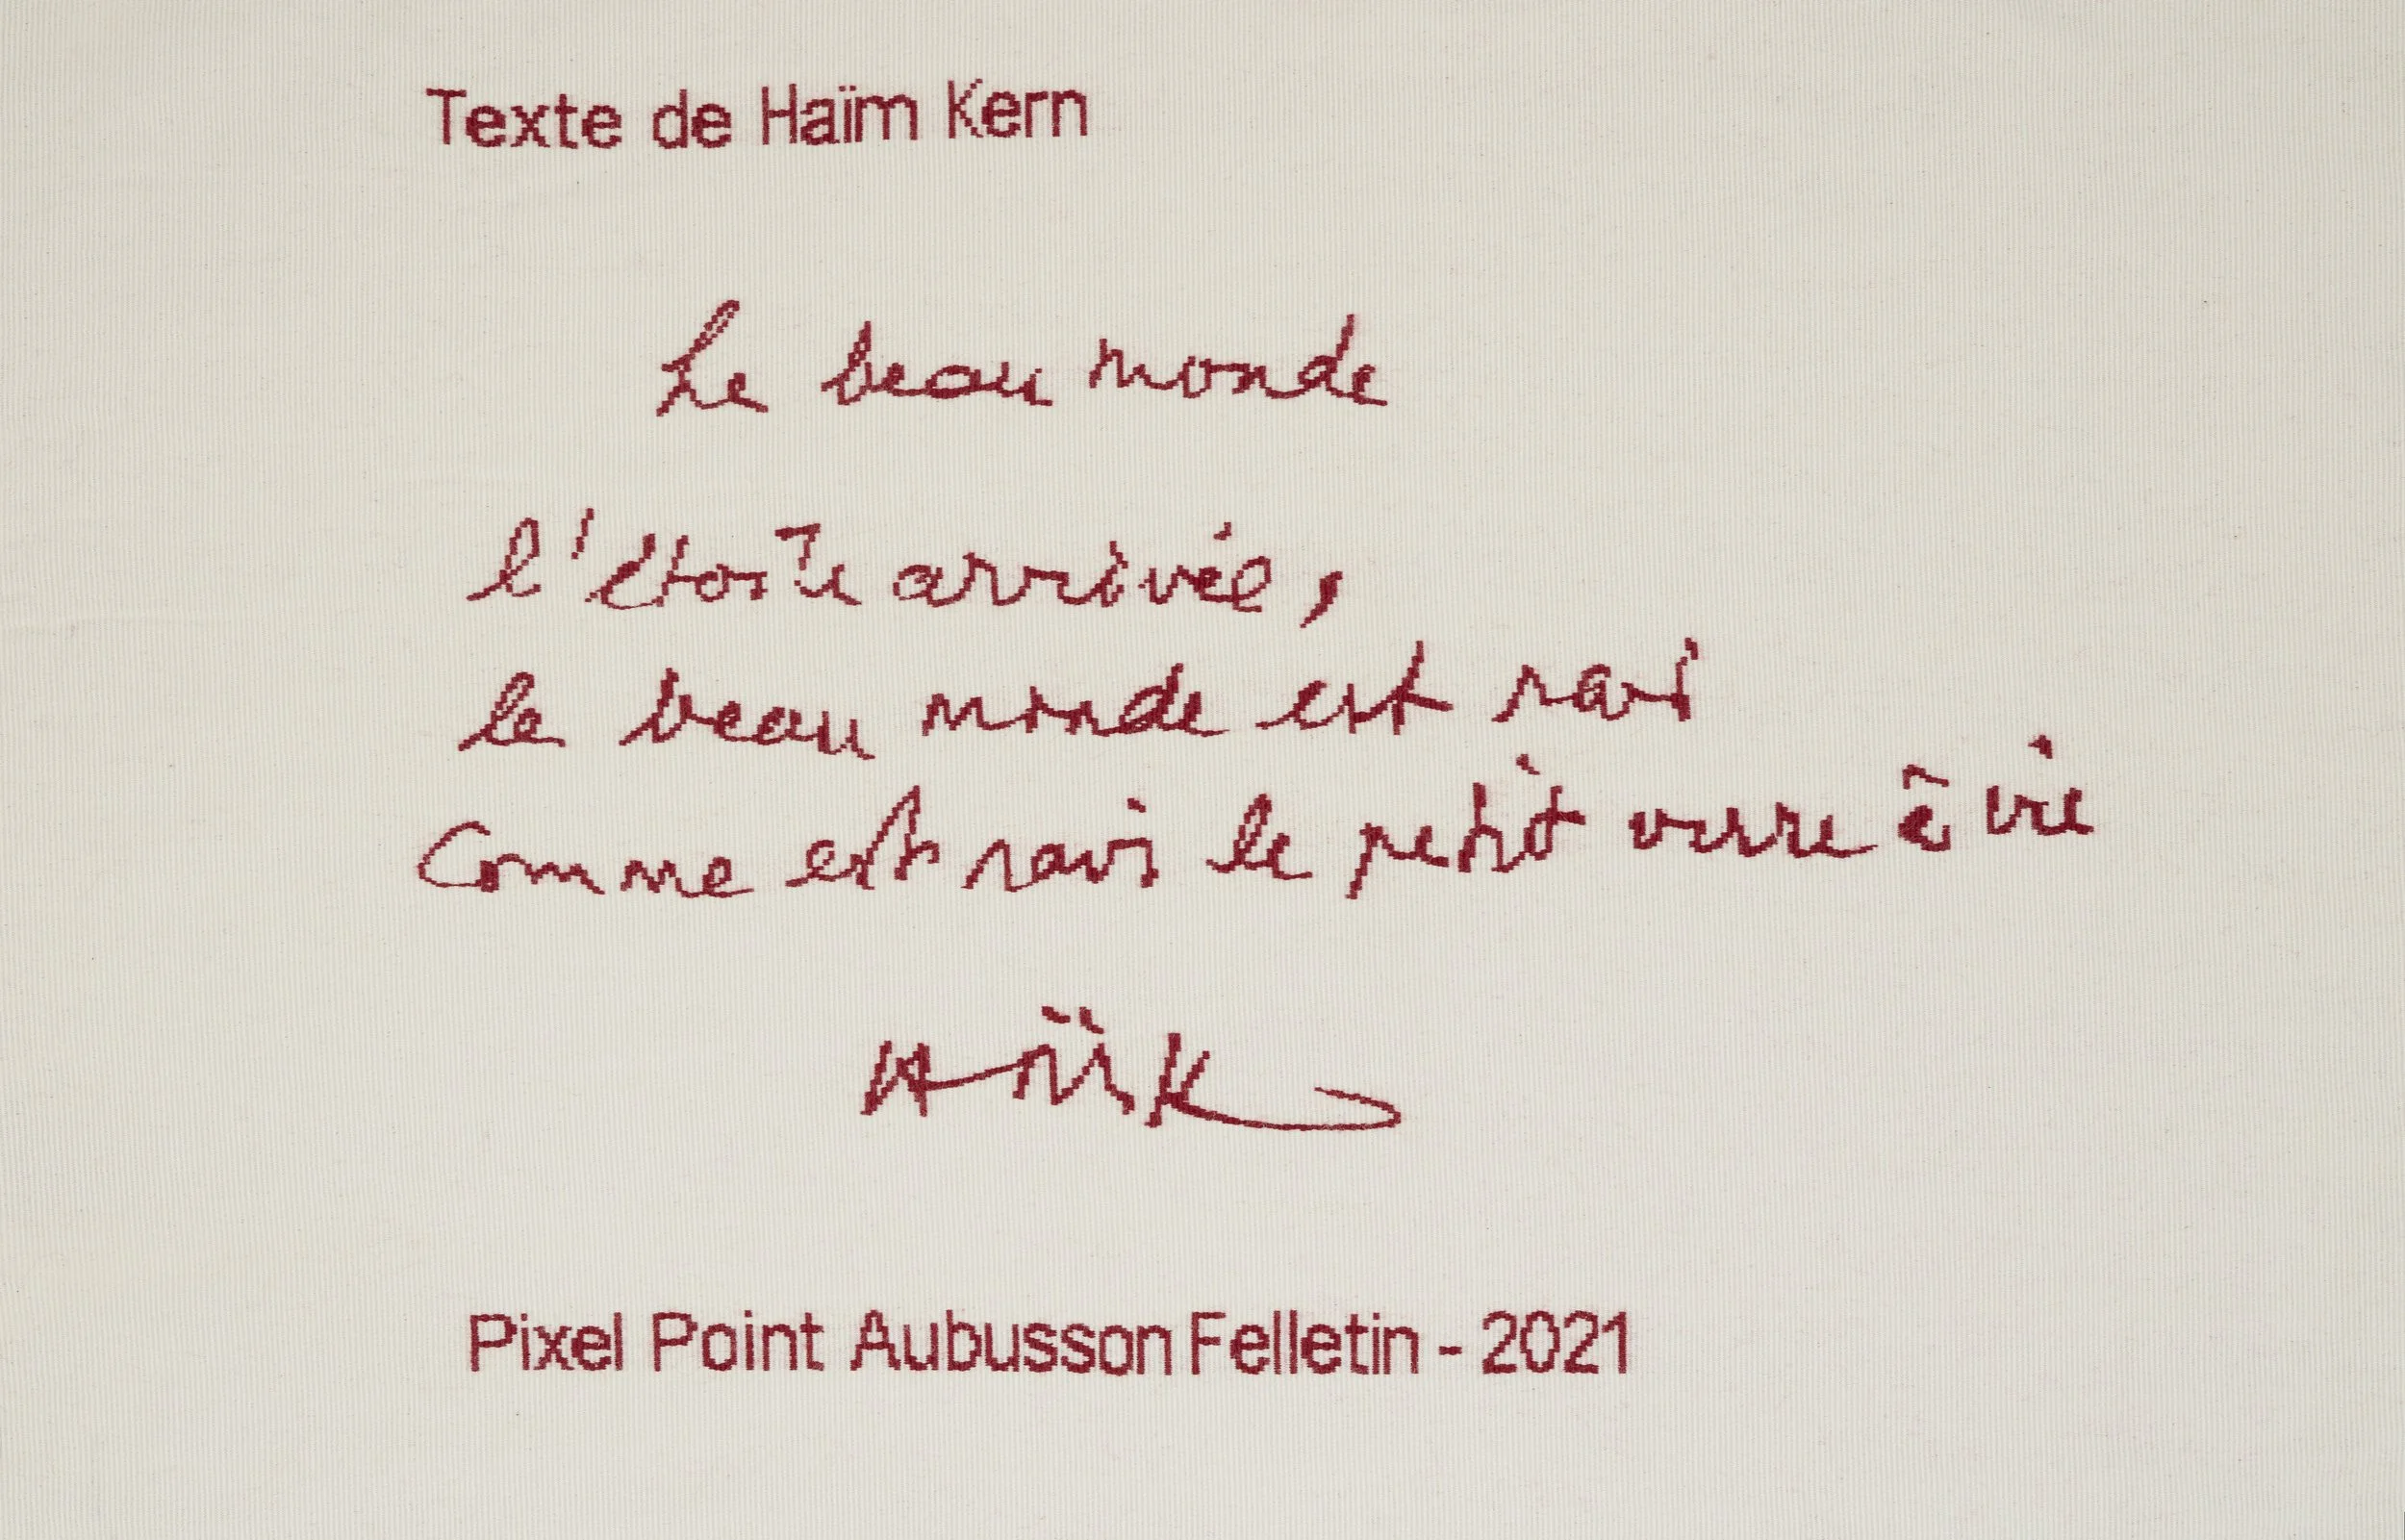 Texte de Haïm Kern
Le beau monde
l'étoile arrivée,
le beau monde est ravi
Comme est ravi le petit verre à vie
Pixel Point Aubusson Felletin - 2021